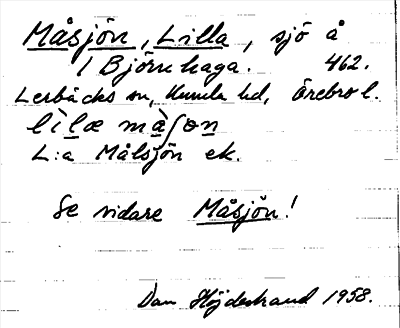 Måsjön, Lilla, sjö å
1 Björnhaga. 462.
Lerbäcks sn, Kumla hd, Örebro l.
lìlæ mà̱ʃo̱n
L:a Målsjön ek.
Se vidare Måsjön!
Dan Höjdestrand 1958.